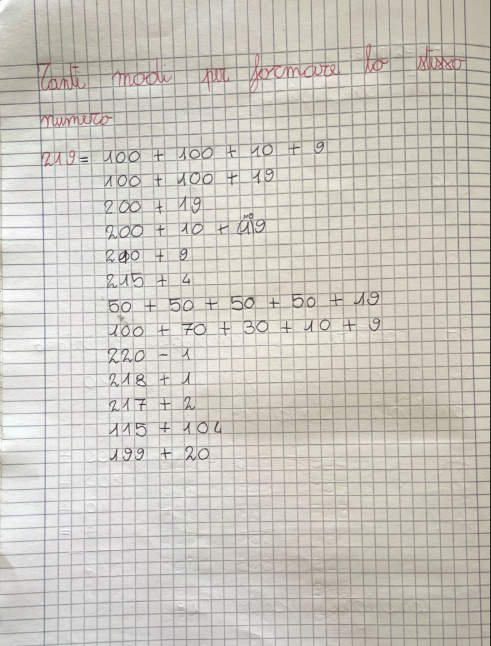 Tanti modi per formare lo stesso
numero
219 = 100 + 100 + 10 + 9
100 + 100 + 19
200 + 19
200 + 10 + 9
210 + 9
215 + 4
50 + 50 + 50 + 50 + 19
100 + 70 + 30 + 10 + 9
220 - 1
218 + 1
217 + 2
115 + 104
199 + 20